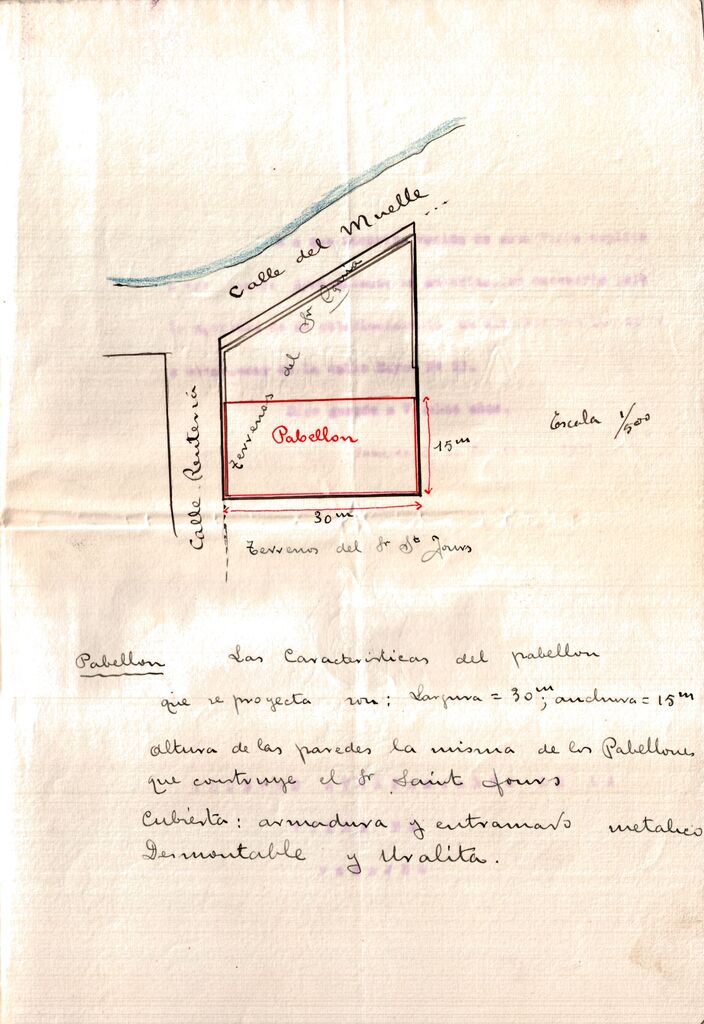 Calle del Muelle ...
Terrenos del Sr
Calle Renteria
Pabellon
15 m
30 m
Escala 1/500
Terrenos del Sr St Jours
Pabellon Las Caracteristicas del pabellon
que se proyecta son: Largura = 30 m; anchura = 15 m
altura de las paredes la misma de los Pabellones
que construye el Sr. Saint Jours
Cubierta: armadura y entramado metalico
Desmontable y Uralita.